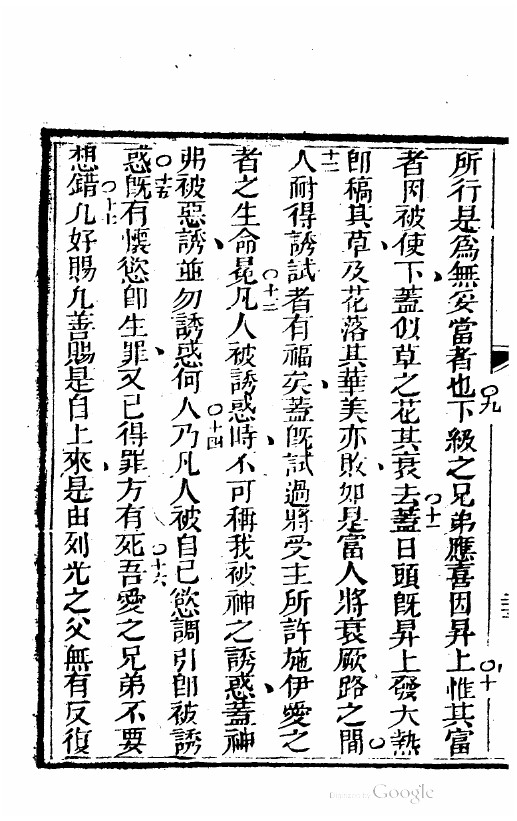 所行是為無妥當者也下級之兄弟應喜因昇上惟其富
者因被使下蓋似草之花其衰去蓋日頭旣昇上發大熱
卽稿其草及花落其華美亦敗如是富人將衰厥路之間
人耐得誘試者有福矣蓋旣試過將受主所許施伊愛之
者之生命冕凡人被誘惑時不可稱我被神之誘惑蓋神
弗被惡誘並勿誘惑何人乃凡人被自己慾調引卽被誘
惑旣有懷慾卽生罪又已得罪方有死吾愛之兄弟不要
想錯凡好賜凡善賜是自上來是由列光之父無有反復
○九
○十
○十一
○十二
○十三
○十四
○十五
○十六
○十七
Digitized by Google